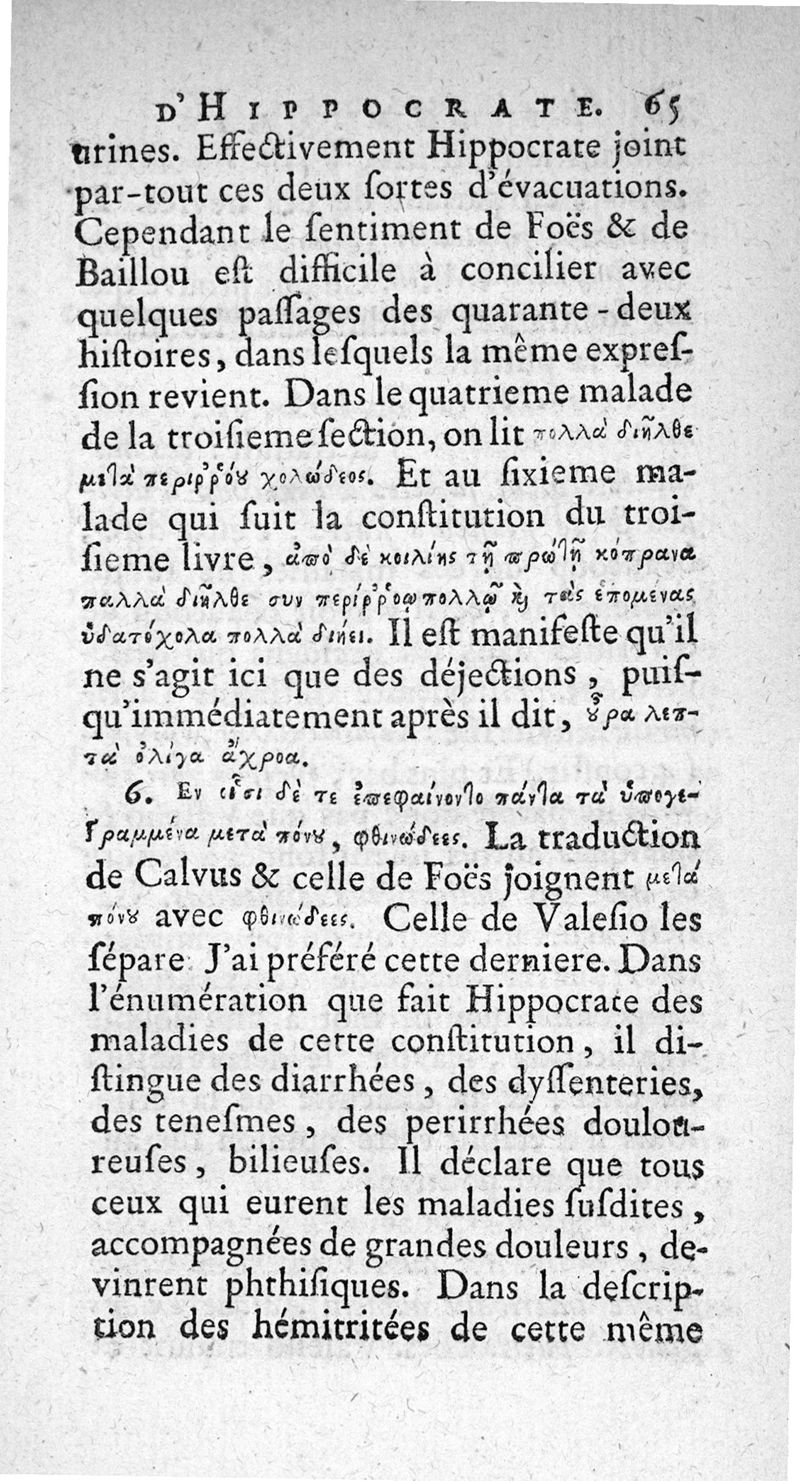 D'HIPPOCRATE. 65
urines. Effectivement Hippocrate joint
par-tout ces deux ſortes d'évacuations.
Cependant le ſentiment de Foës & de
Baillou eſt difficile à concilier avec
quelques paſſages des quarante-deux
hiſtoires, dans leſquels la même expreſ-
ſion revient. Dans le quatrieme malade
de la troiſieme ſection, on lit πολλὰ διῆλθε
μεlὰ περιῤῥόȣ χολώδεος. Et au ſixieme ma-
lade qui ſuit la conſtitution du troi-
ſieme livre, ἀπὸ δὲ κοιλίης τῇ πρώlῃ κόπρανα
παλλὰ διῆλθε συν περίῤῥοῳ πολλῷ ϗ τὰς ἑπομένας
ὑδατόχολα πολλὰ διῄει. Il eſt manifeſte qu'il
ne s'agit ici que des déjections, puiſ-
qu'immédiatement après il dit, ȣ̓͂ρα λεπ-
τὰ ὀλίγα ἄχροα.
6. Εν εἷσι δὲ τε ἐπεφαίνονlο πάνlα τὰ ὑπογε-
γραμμένα μετὰ πόνȣ, φθινώδεες. La traduction
de Calvus & celle de Foës joignent μεlὰ
πόνȣ avec φθινώδεες. Celle de Valeſio les
ſépare J'ai préféré cette derniere. Dans
l'énumération que fait Hippocrate des
maladies de cette conſtitution, il di-
ſtingue des diarrhées, des dyſſenteries,
des teneſmes, des perirrhées doulou-
reuſes, bilieuſes. Il déclare que tous
ceux qui eurent les maladies ſuſdites,
accompagnées de grandes douleurs, de-
vinrent phthiſiques. Dans la deſcrip-
tion des hémitritées de cette même